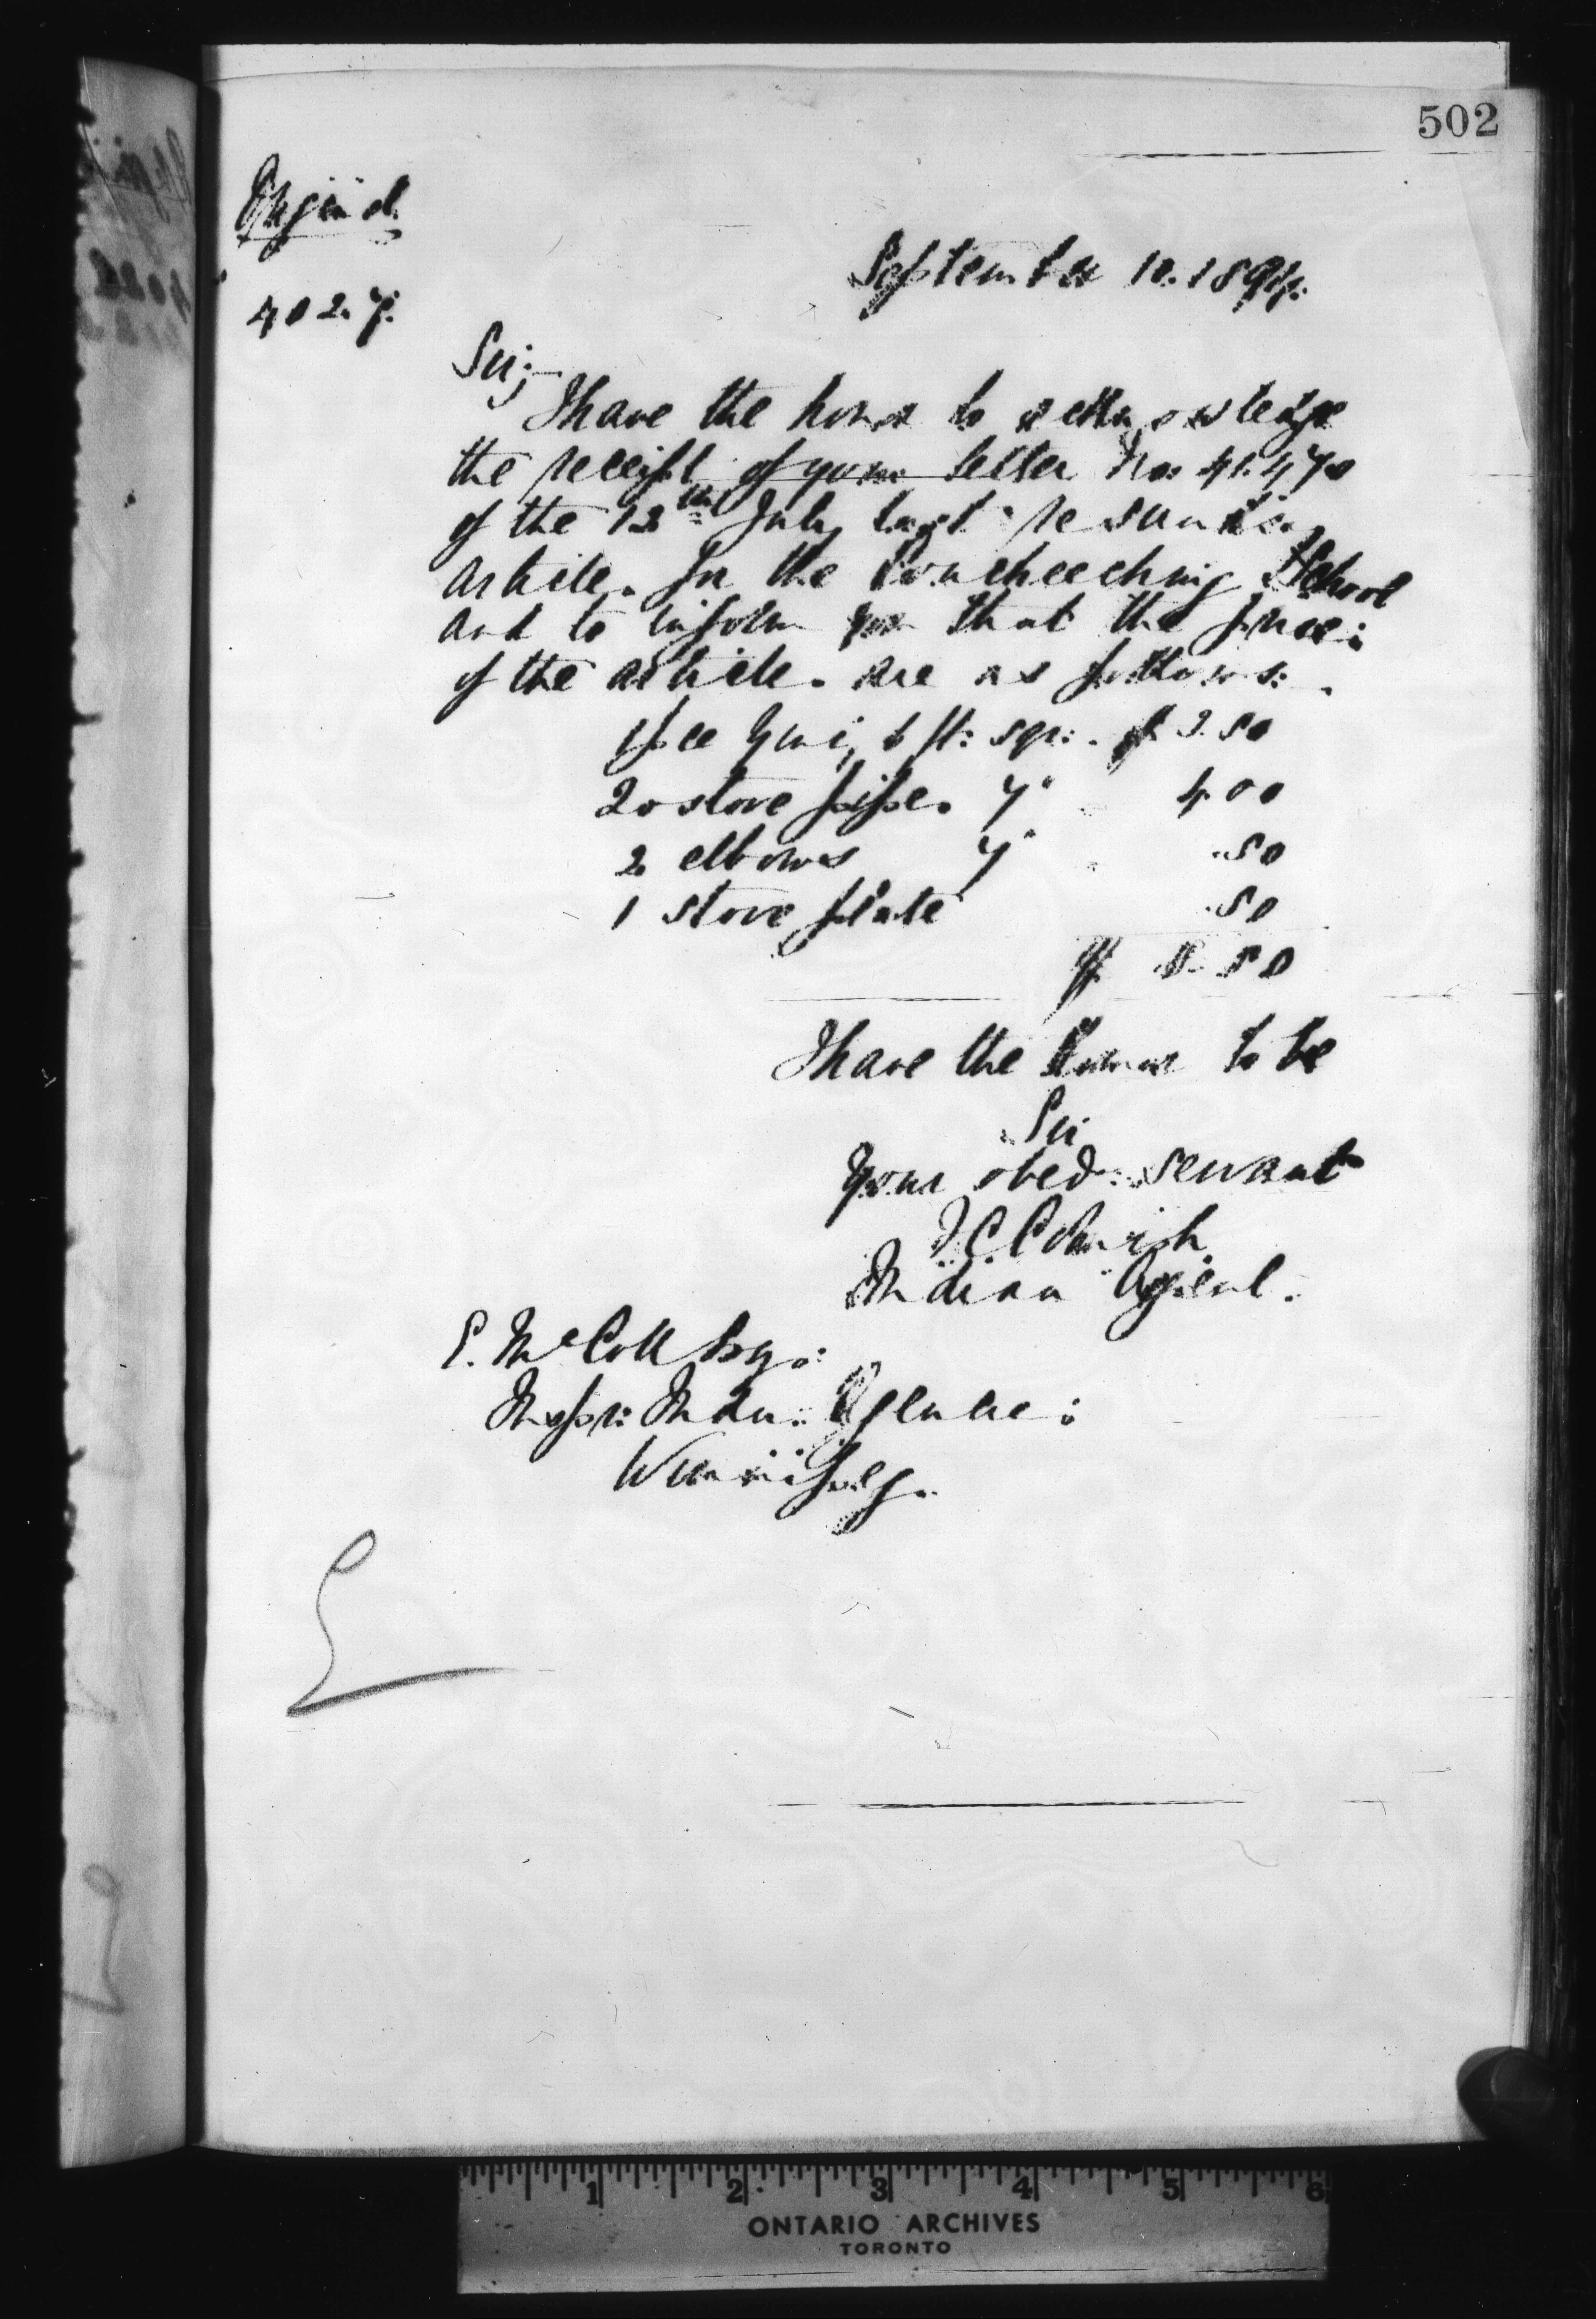 502
Original
402.7.
September 10. 1894.
Sir;-
I have the honor to acknowledge
the receipt of your letter No: 41.470
of the 12th July last re sundry
article. for the Coucheeching School
and to inform you that the price:
of the article. are as follows:
1 pce Zinc, 6 ft: sqr: . $ 3.50
20 stove pipe. 7" 4.00
2 elbows 7" .50
1 stove plate .50
$ 8.50
I have the honor to be
Sir
Your obed: servant
Cornish
Indian Agent.
E. McColl Esq.:
Inspr: Indn: Agencie:
Winnipeg.
1 2 3 4 5 6
ONTARIO ARCHIVES
TORONTO